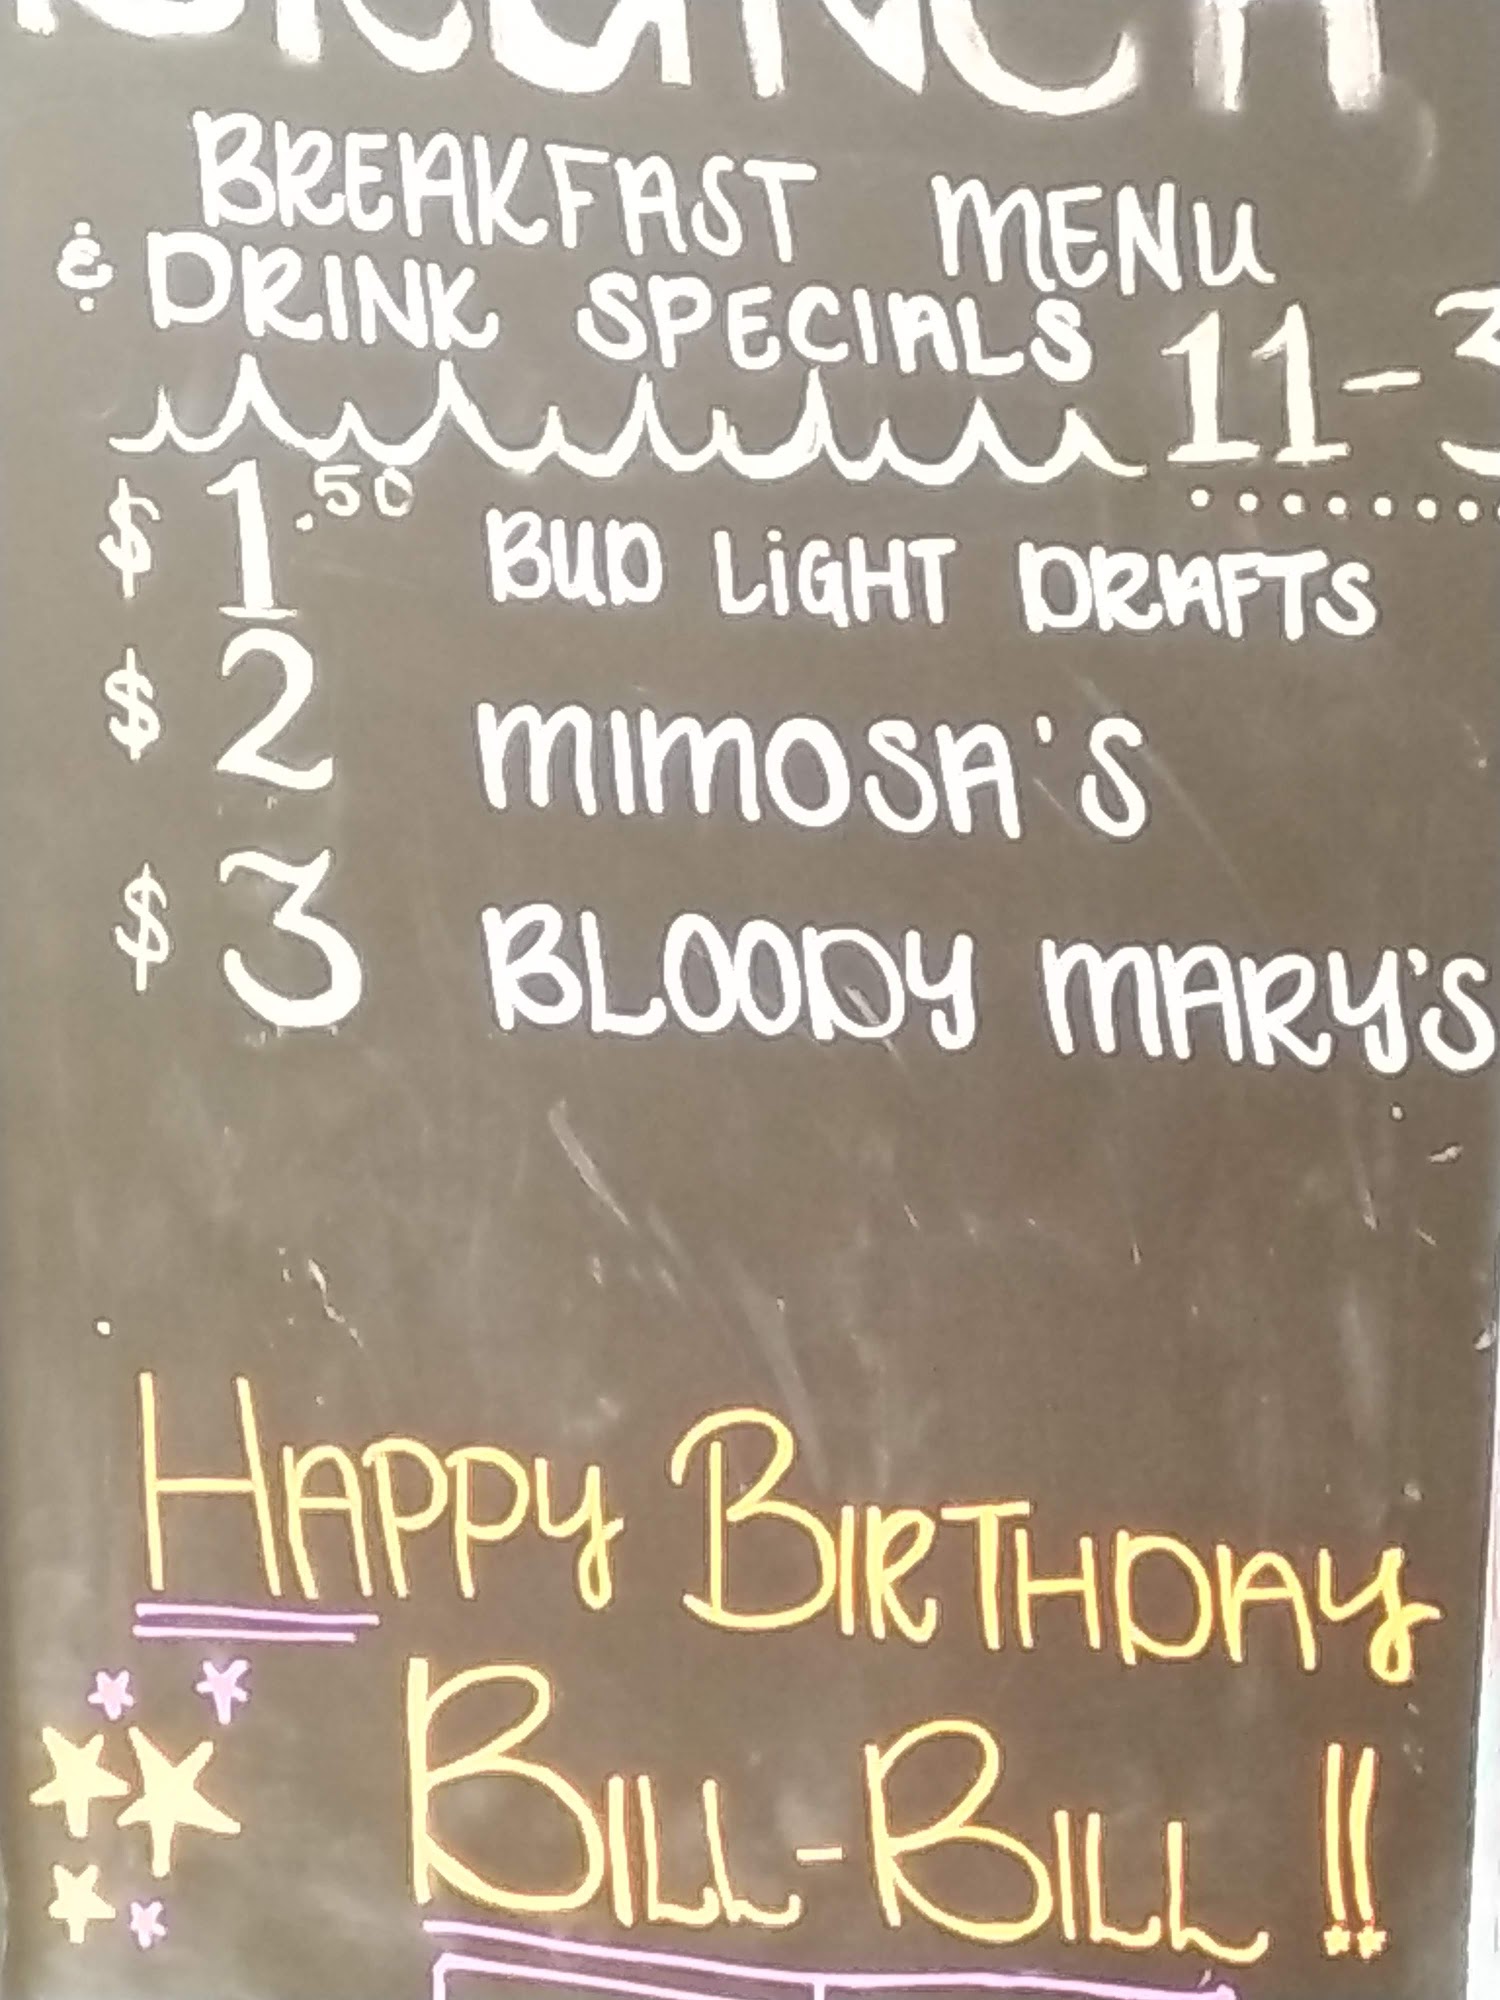 BRUNCH
BREAKFAST MENU
& DRINK SPECIALS 11-3
$ 1.50 BUD LiGHT DRAFTS
$ 2 MIMOSA'S
$ 3 BLOODY MARY'S
HAPPY BIRTHDAY
BILL-BILL!!